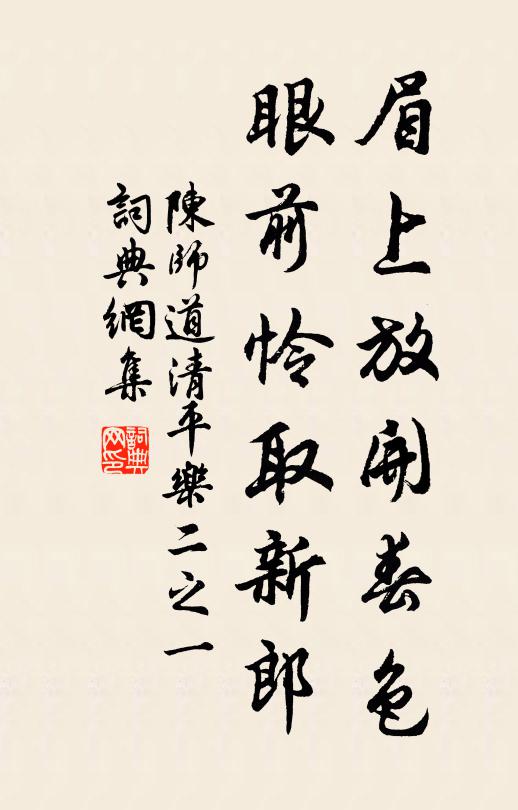 眉上放開春色
眼前怜取新郎
陳師道清平樂二之一
詞典網集
詞典網印